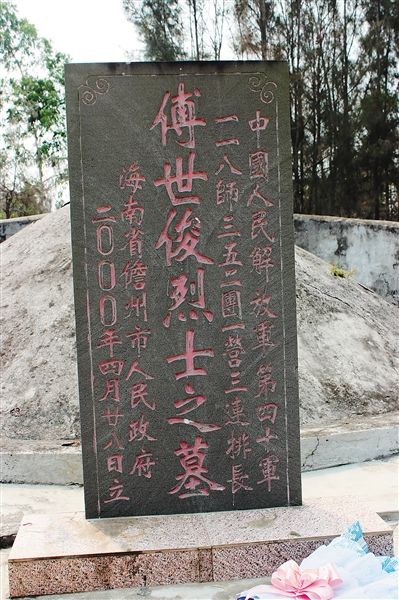 中國人民解放軍第四十軍
一一八師三五二團一營三連排長
傅世俊烈士之墓
海南省儋州市人民政府
二〇〇〇年四月廿八日立